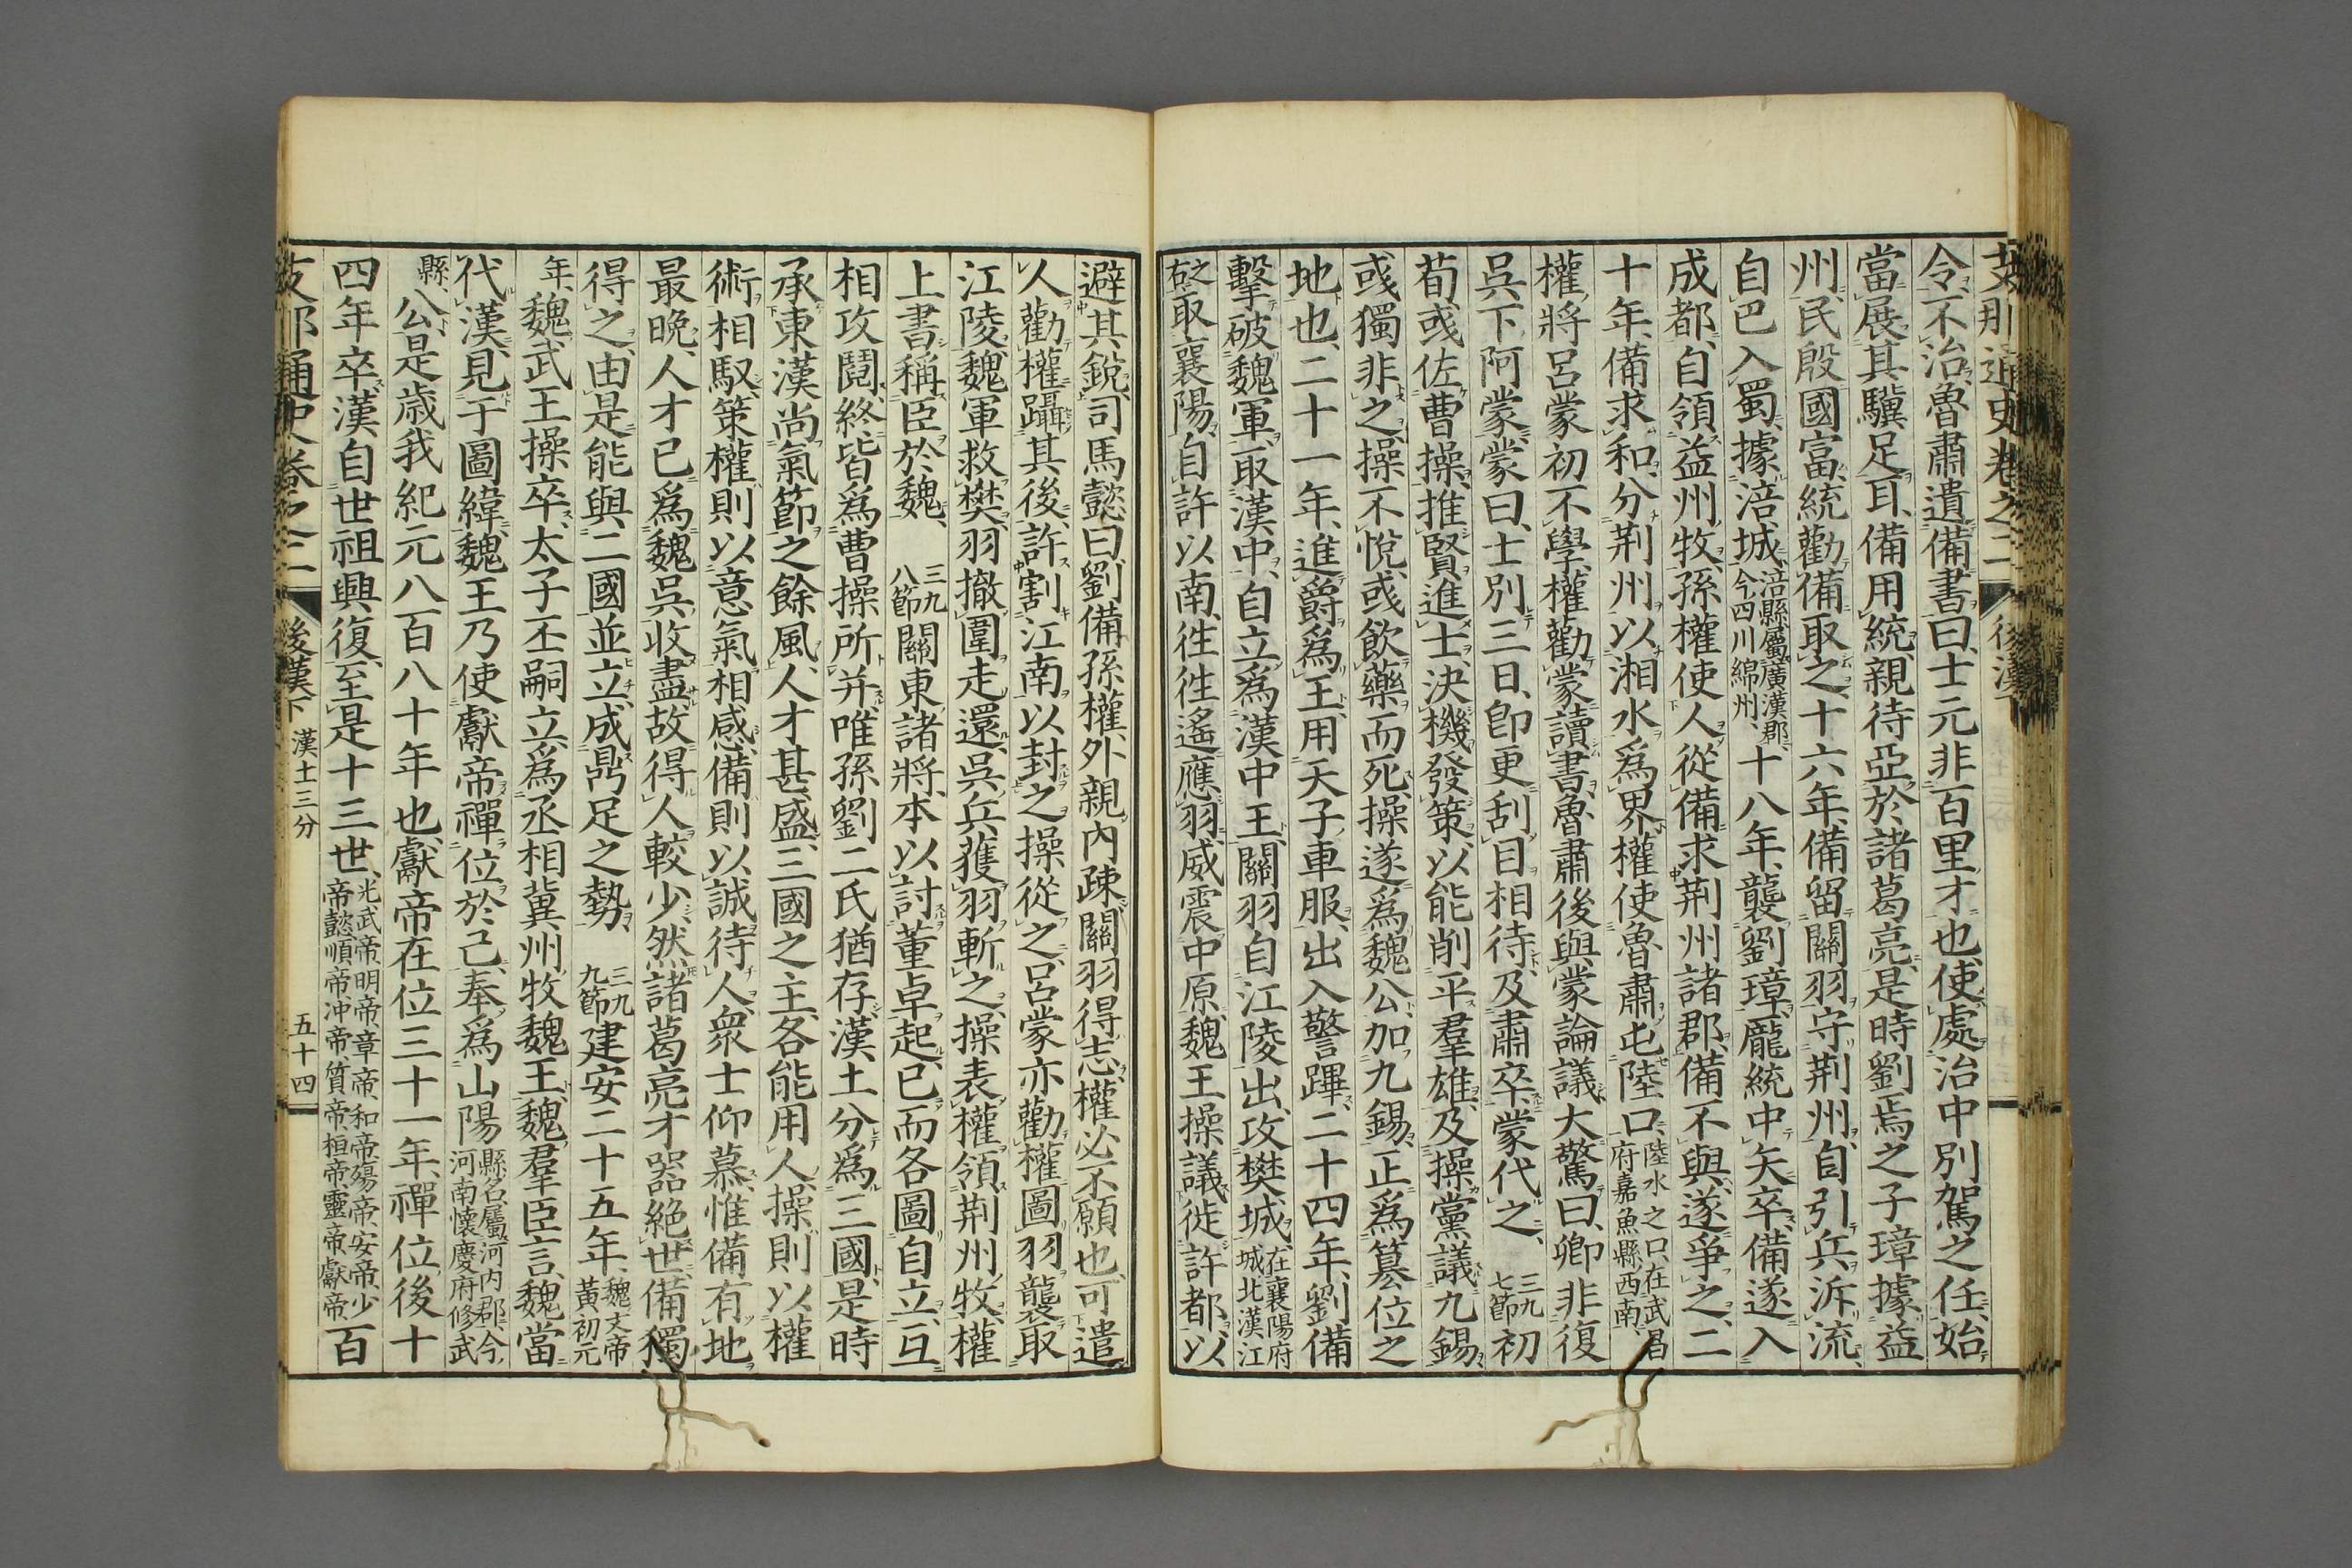 支那通史卷之二 後漢下
令、不治、魯肅遺備書曰、士元非百里才也、使處治中別駕之任、始
當展其驥足耳、備用統、親待亞於諸葛亮、是時劉焉之子璋據益
州、民殷國富、統勸備取之、十六年、備留關羽守荊州、自引兵泝流、
自巴入蜀、據涪城、涪縣屬廣漢郡、今四川綿州、十八年、襲劉璋、龐統中矢卒、備遂入
成都、自領益州牧、孫權使人從備求荊州諸郡、備不與、遂爭之、二
十年、備求和、分荊州以湘水爲界、權使魯肅屯陸口、陸水之口、在武昌府嘉魚縣西南、
權將呂蒙初不學、權勸蒙讀書、魯肅後與蒙論議、大驚曰、卿非復
吳下阿蒙、蒙曰、士別三日、卽更刮目相待、及肅卒、蒙代之、三九七節初
荀彧佐曹操、推賢進士、決機發策、以能削平羣雄、及操黨議九錫、
彧獨非之、操不悅、彧飮藥而死、操遂爲魏公、加九錫、正爲篡位之
地也、二十一年、進爵爲王、用天子車服、出入警蹕、二十四年、劉備
擊破魏軍、取漢中、自立爲漢中王、關羽自江陵出、攻樊城、在襄陽府城北漢江
之右、取襄陽、自許以南、往往遙應羽、威震中原、魏王操議徙許都、以
避其銳、司馬懿曰、劉備孫權、外親內疎、關羽得志、權必不願也、可遣
人勸權躡其後、許割江南以封之、操從之、呂蒙亦勸權圖羽、襲取
江陵、魏軍救樊、羽撤圍走還、吳兵獲羽斬之、操表權領荊州牧、權
上書稱臣於魏、三九八節關東諸將、本以討董卓起、已而各圖自立、互
相攻鬩、終皆爲曹操所幷、唯孫劉二氏猶存、漢土分爲三國、是時
承東漢尙氣節之餘風、人才甚盛、三國之主、各能用人、操則以權
術相馭、策權則以意氣相感、備則以誠待人、衆士仰慕、惟備有地
最晚、人才已爲魏吳收盡、故得人較少、然諸葛亮才器絕世、備獨
得之、由是能與二國並立、成鼎足之勢、三九九節建安二十五年、魏文帝黃初元
年、魏武王操卒、太子丕嗣立、爲丞相冀州牧魏王、魏羣臣言、魏當
代漢、見于圖緯、魏王乃使獻帝禪位於己、奉爲山陽縣名、屬河內郡、今河南懷慶府修武
縣、公、是歲我紀元八百八十年也、獻帝在位三十一年、禪位後十
四年卒、漢自世祖興復、至是十三世、光武帝、明帝、章帝、和帝、殤帝、安帝、少帝懿、順帝、沖帝、質帝、桓帝、靈帝、獻帝、百
支那通史卷之二 後漢下 漢土三分 五十四